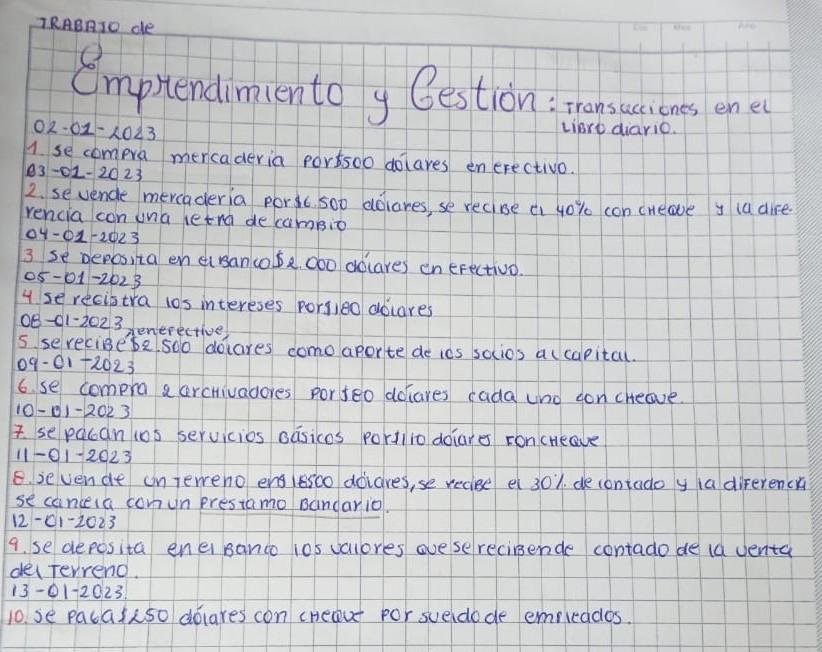 TRABAJO de
Emprendimiento y Gestión: Transacciones en el
Libro diario.
02-01-2023
1. se compra mercaderia por $500 dólares en efectivo.
03-01-2023
2. se vende mercaderia por $6.500 dólares, se recibe el 40% con cheque y la dife-
rencia con una letra de cambio
04-01-2023
3 se Deposita en el Banco $2.000 dólares en efectivo.
05-01-2023
4 se registra los intereses por $180 dólares
08-01-2023 en efectivo
5 se recibe $2.500 dólares como aporte de los socios al capital.
09-01-2023
6. se compra 2 archivadores por $80 dólares cada uno con cheque.
10-01-2023
7. se pagan los servicios básicos por $110 dólares con cheque
11-01-2023
8. se vende un Terreno en $18500 dólares, se recibe el 30% de contado y la diferencia
se cancela con un prestamo Bancario.
12-01-2023
9. se deposita en el Banco los valores que se reciben de contado de la venta
del Terreno.
13-01-2023.
10. se paga $250 dólares con cheque por sueldo de empleados.